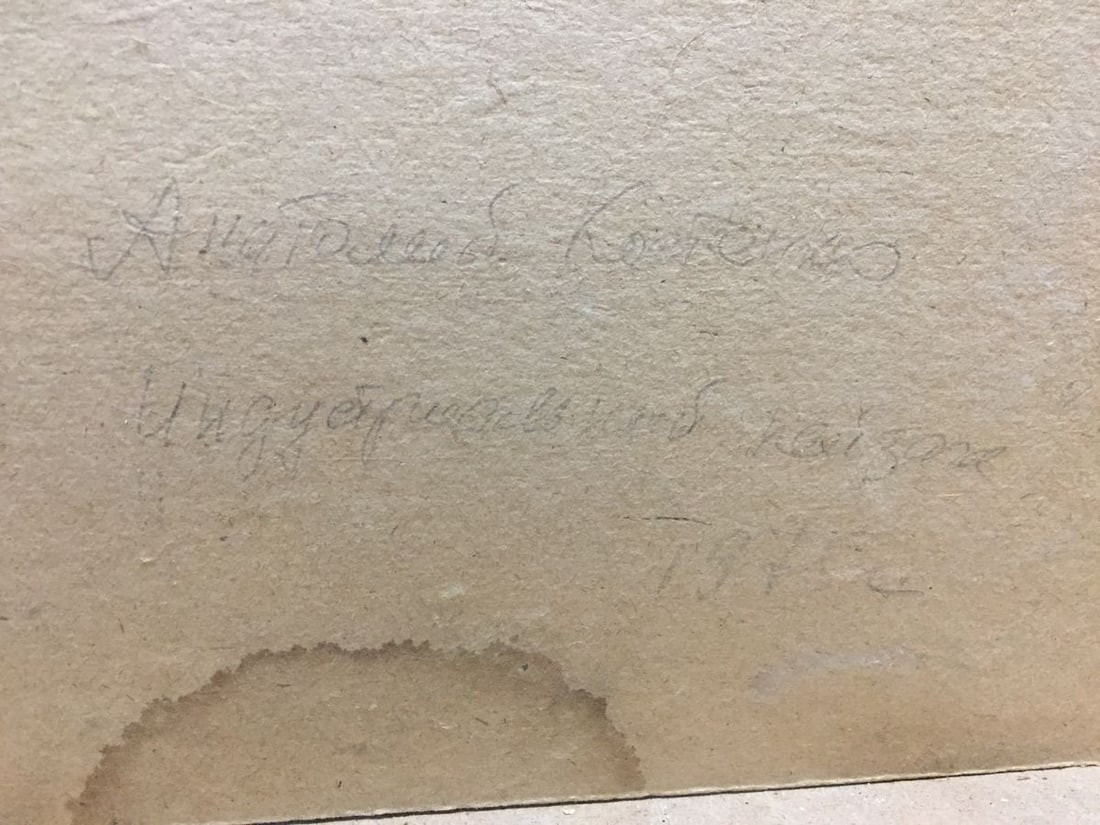 Анатолий Костенко
Индустриальный пейзаж